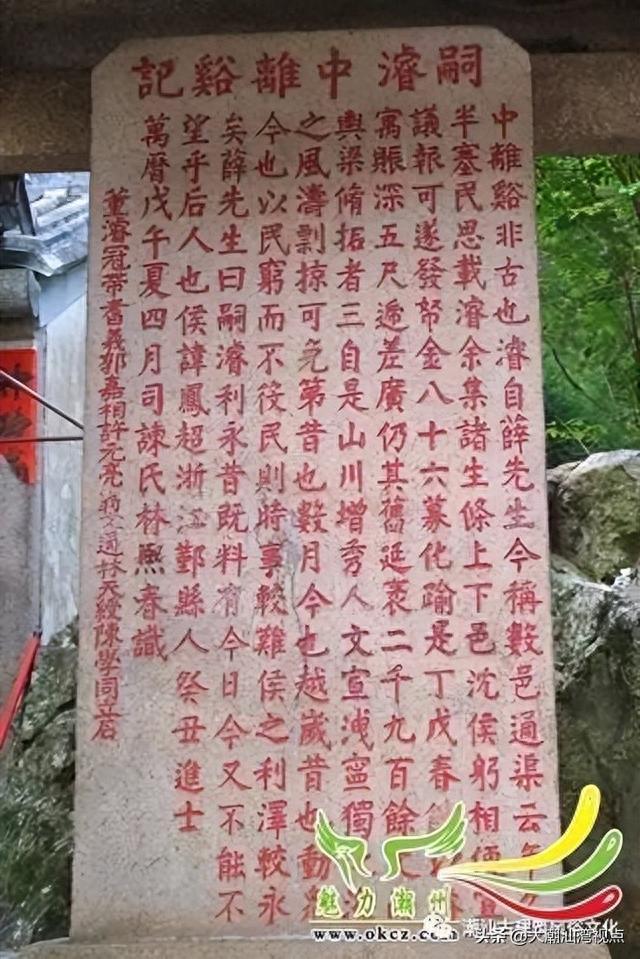 嗣濬中離谿記
中離谿非古也濬自薛先生今稱數邑通渠云年久
半塞民思載濬余集諸生條上下邑沈侯躬相便宜
議報可遂發帑金八十六募化踰是丁戊春
寓賑深五尺遞差廣仍其舊延袤二千九百餘丈
輿梁脩拓者三自是山川增秀人文宣洩寧獨
之風濤剽掠可免第昔也數月今也越歲昔也動
今也以民窮而不役民則時事較難侯之利澤較永
矣薛先生曰嗣濬利永昔既料有今日今又不能不
望乎后人也侯諱鳳超浙江鄞縣人癸丑進士
萬曆戊午夏四月司諫氏林熙春識
董濬冠帶耆義郭嘉相許元亮通林天綬陳學同立石
魅力潮州
www.okcz.com
潮汕古建與民俗文化
头条 @大潮汕湾视点